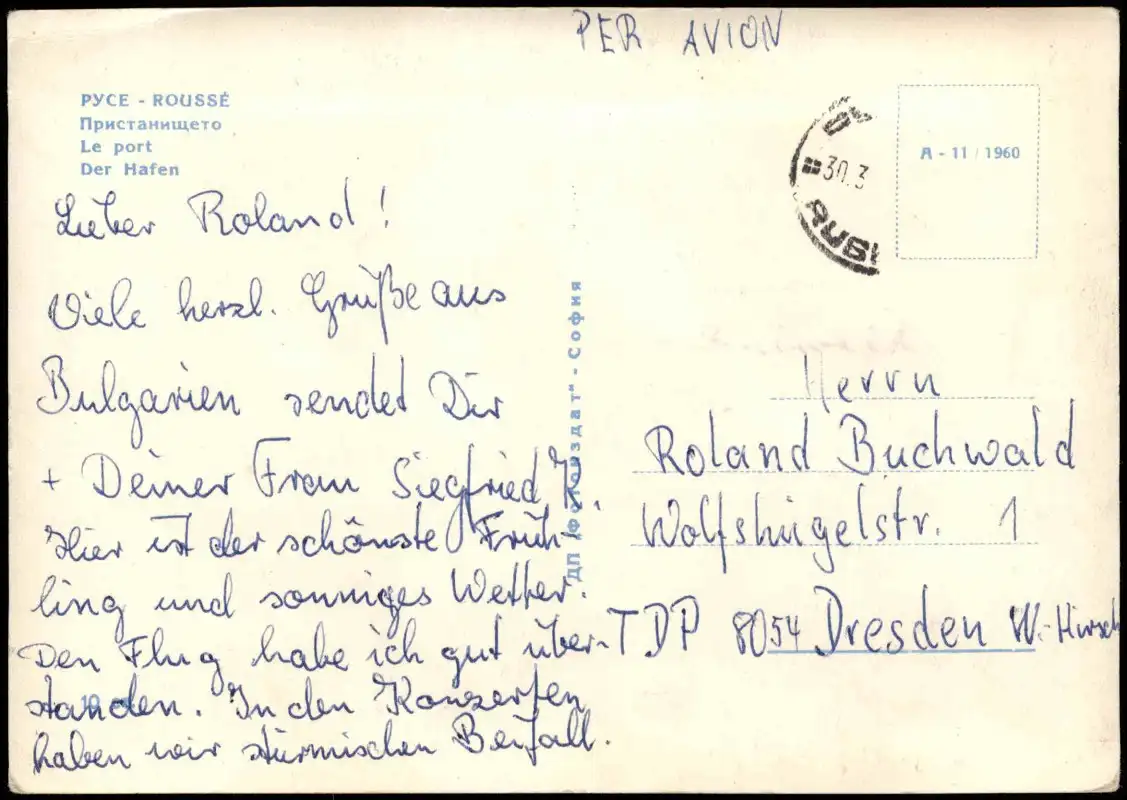 PER AVION
РУСЕ - ROUSSÉ
Пристанището
Le port
Der Hafen
Lieber Roland!
Viele herzl. Grüße aus
Bulgarien sendet Dir
+ Deiner Frau Siegfried
Hier ist der schönste Früh-
ling und sonniges Wetter.
Den Flug habe ich gut über-
standen. In den Konzerten
haben wir stürmischen Beifall.
ДП "Фотоиздат" - София
30.3
A - 11 / 1960
Herrn
Roland Buchwald
Wolfshügelstr. 1
TDP 8054 Dresden W.-Hirsch